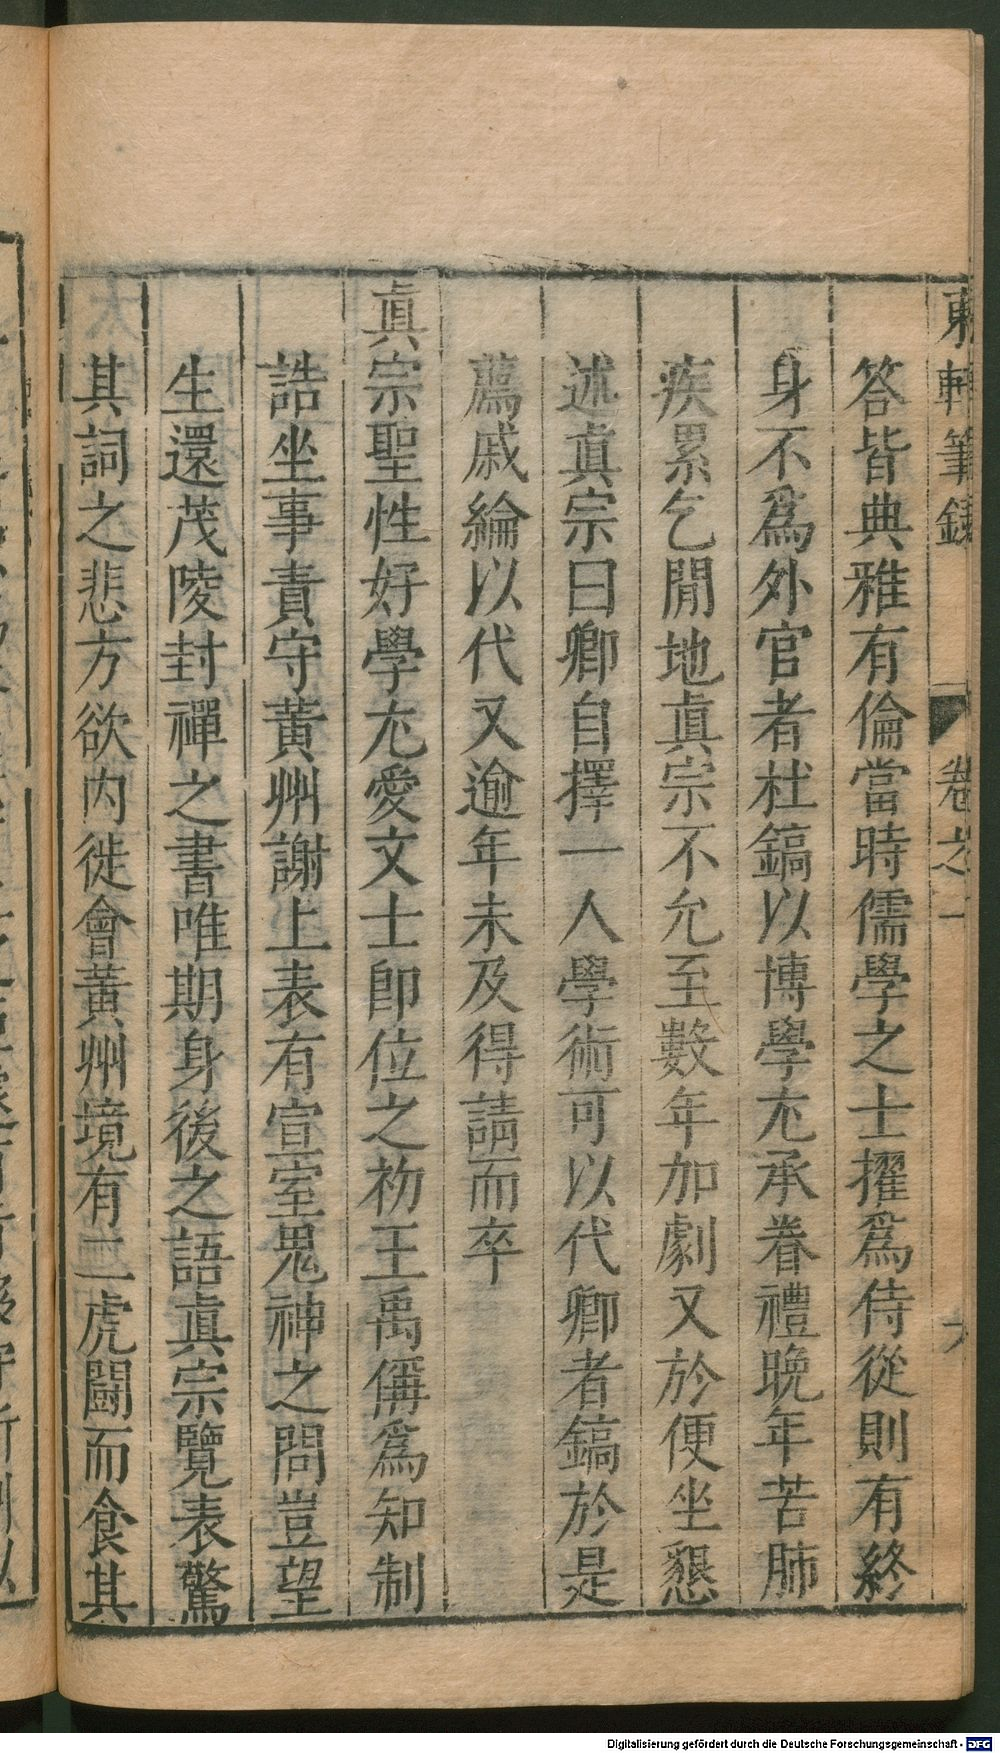 東軒筆錄 卷之一
答皆典雅有倫當時儒學之士擢爲侍從則有終
身不爲外官者杜鎬以博學尤承眷禮晚年苦肺
疾累乞閒地眞宗不允至數年加劇又於便坐懇
述眞宗曰卿自擇一人學術可以代卿者鎬於是
薦戚綸以代又逾年未及得請而卒
眞宗聖性好學尤愛文士卽位之初王禹偁爲知制
誥坐事責守黃州謝上表有宣室鬼神之問豈望
生還茂陵封禪之書唯期身後之語眞宗覽表驚
其詞之悲方欲内徙會黃州境有二虎鬬而食其
Digitalisierung gefördert durch die Deutsche Forschungsgemeinschaft - DFG